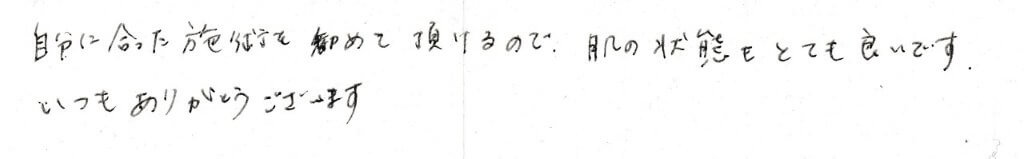 自分に合った施術を勧めて頂けるので、肌の状態もとても良いです.
いつもありがとうございます